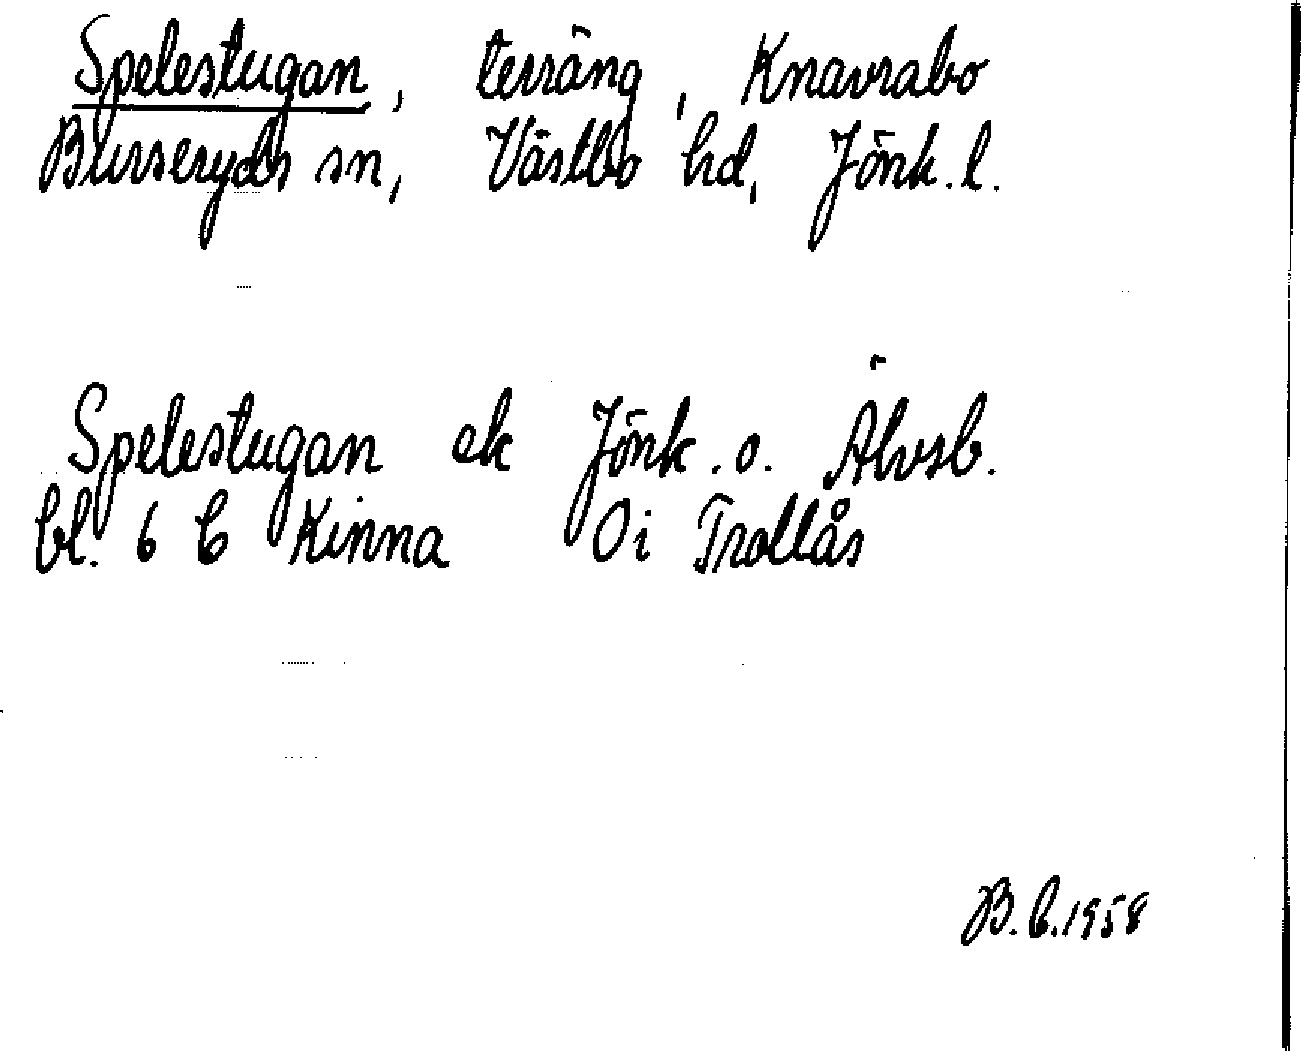 Spelestugan, terräng, Knavrabo
Burseryds sn, Västbo hd, Jönk. l.
Spelestugan ek Jönk. o. Älvsb.
bl. 6 C Kinna Oi Trollås
B.C. 1958